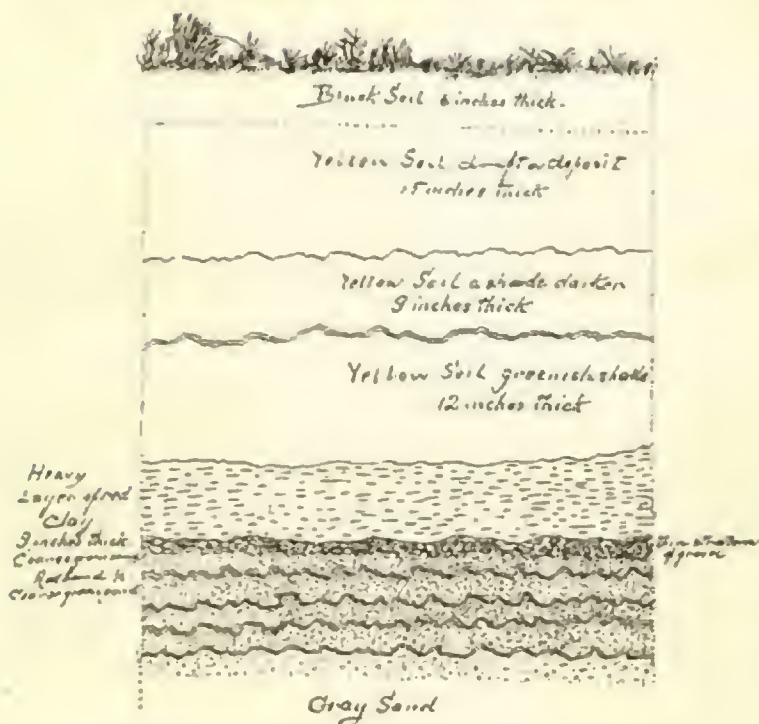 Black Soil 6 inches thick.
Yellow Soil deposit
15 inches thick
Yellow Soil a shade darker
9 inches thick
Yellow Soil greenish shade
12 inches thick
Heavy
Layer of red
Clay
9 inches thick
Coarse
Red
Coarse
Thin stratum
of gravel
Gray Sand